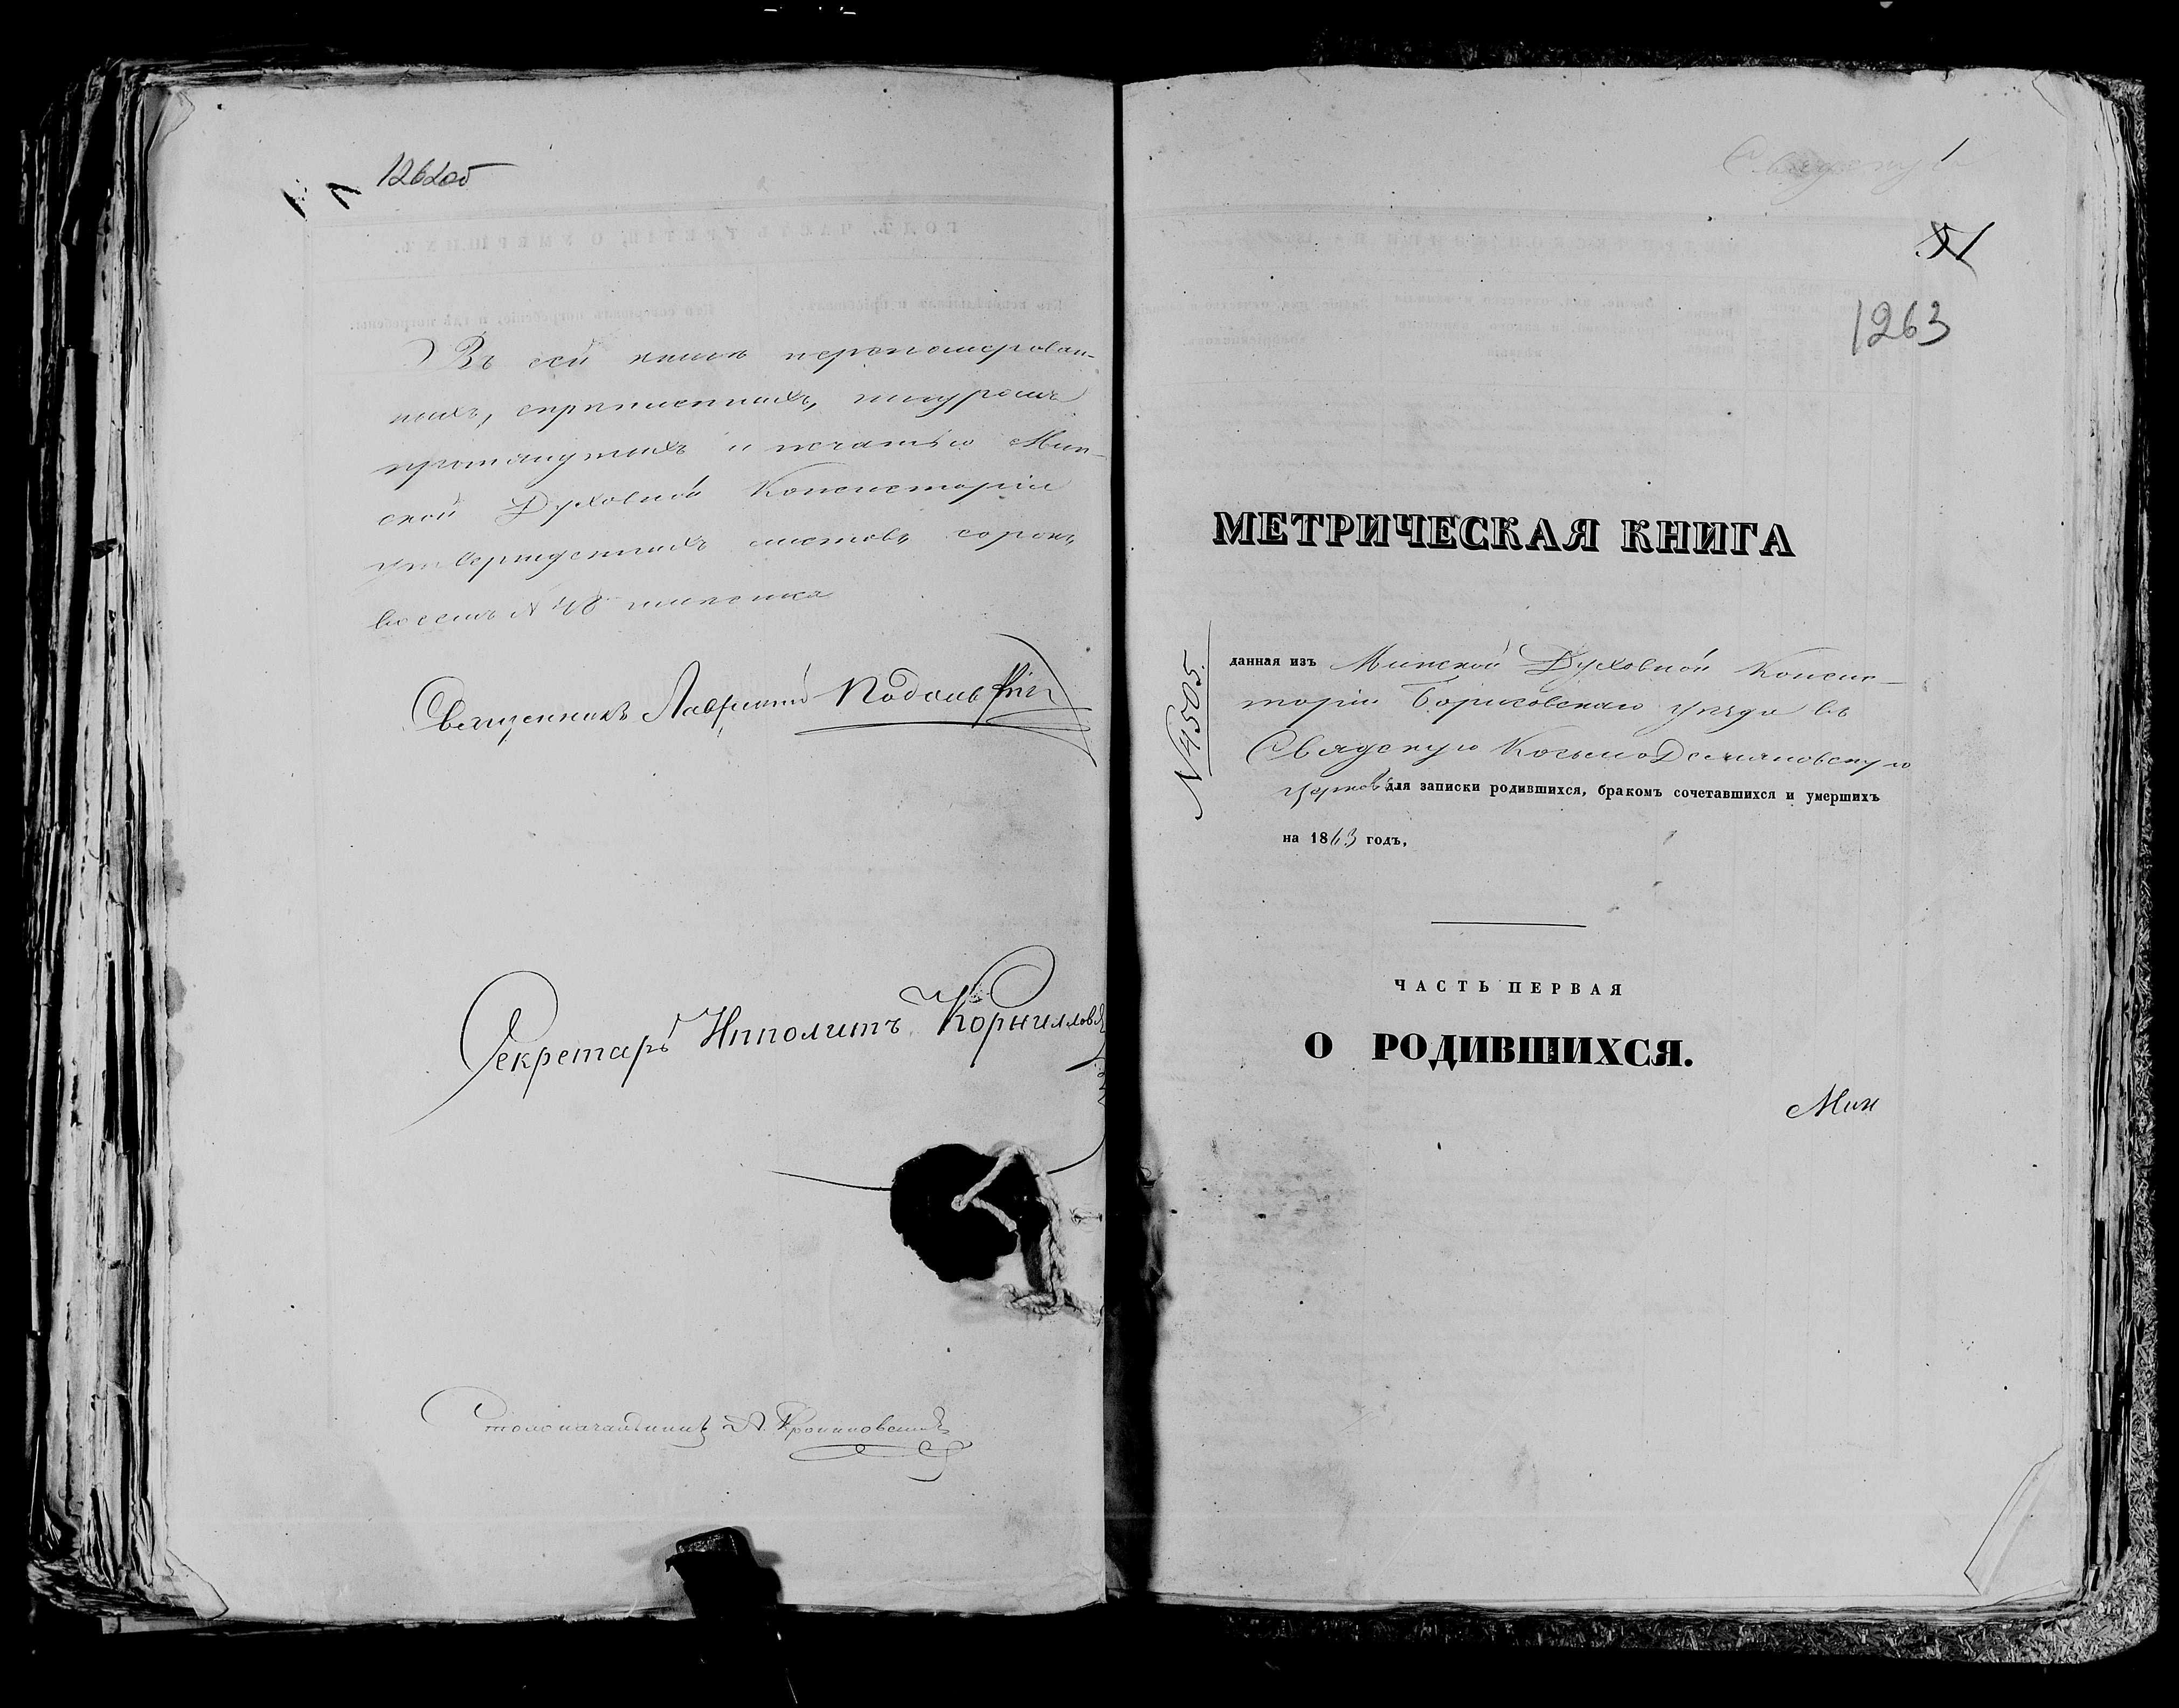 1262об
Въ сей книгѣ перономерован-
ныхъ, скрѣпленныхъ, шнуромъ
протянутыхъ и печатью Мин-
ской Духовной Консисторіи
утвержденныхъ листовъ сорокъ
восемъ № 48
Священникъ Лаврентій
Секретарь Ипполитъ Корниловъ
Столоначальникъ А.
Свядскую
1
51
1263
МЕТРИЧЕСКАЯ КНИГА
№ 4505.
данная изъ Минской Духовной Консис-
торіи Борисовскаго уѣзда въ
Свядскую Козьмо Деміановскую
церковь для записки родившихся, бракомъ сочетавшихся и умершихъ
на 1863 годъ,
ЧАСТЬ ПЕРВАЯ
О РОДИВШИХСЯ.
Мин